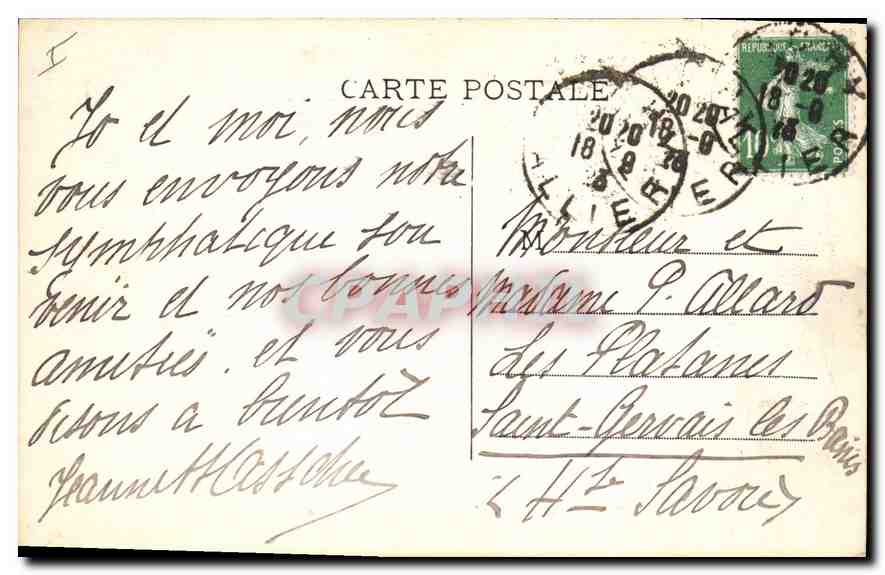 CARTE POSTALE
REPUBLIQUE FRANCAISE
POSTES
ALLIER
20 20
18 -9
Jo et moi, nous
vous envoyons notre
symphatique sou
venir et nos bonnes
amitiés. et vous
disons a bientôt
Jeanne
Monsieur et
Madame P. Allard
Les Platanes
Saint-Gervais les Bains
Hte Savoie